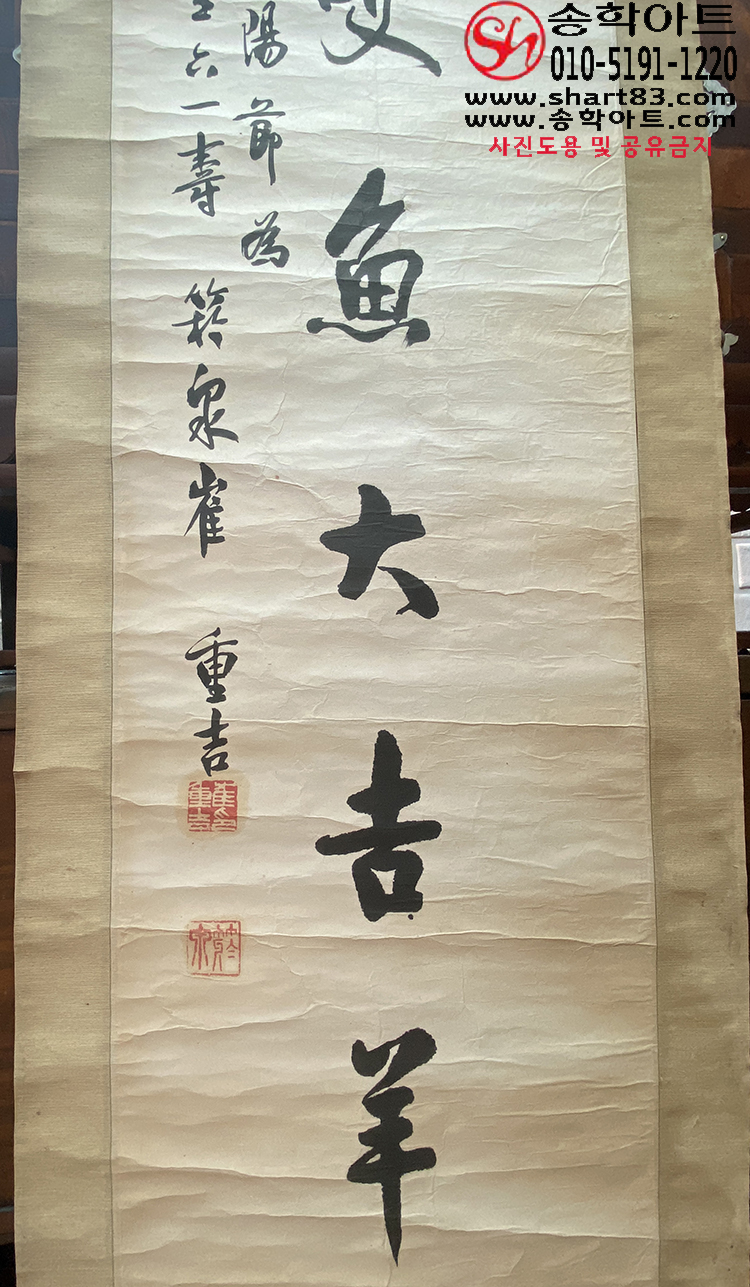 魚大吉羊
陽節為
六一壽
泉崔重吉
崔印重吉
Sh
송학아트
010-5191-1220
www.shart83.com
www.송학아트.com
사진도용 및 공유금지